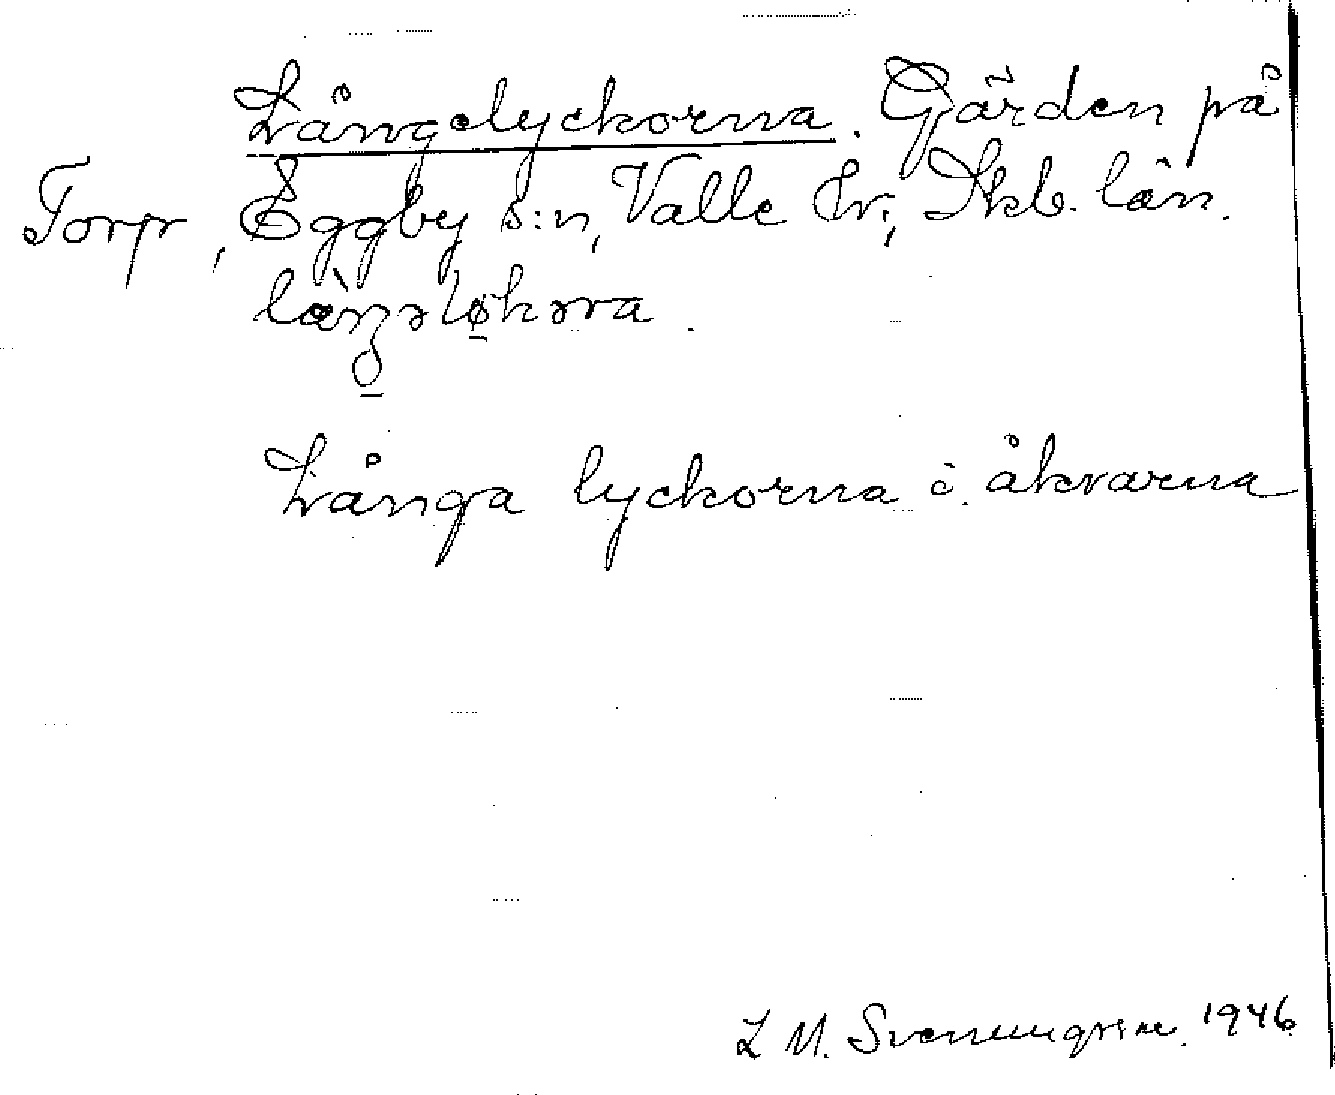 Långelyckorna. Gärden på
Torp, Eggby s:n, Valle hd; Skb. län.
Långa lyckorna i åkrarna
L M. Svenungsson. 1946